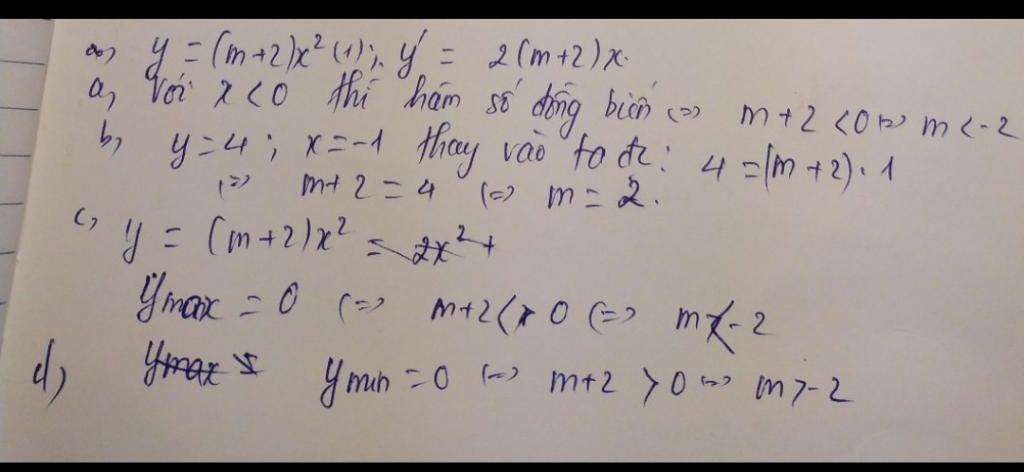 y = (m+2)x² (1); y' = 2(m+2)x.
a, Với x < 0 thì hàm số đồng biến <=> m+2 <0 <=> m < -2
b, y = 4 ; x = -1 thay vào ta đc: 4 = (m+2).1
<=> m+2 = 4 <=> m = 2.
c, y = (m+2)x² = 2x² +
ymax = 0 <=> m+2 < 0 <=> m < -2
d) ymax ymin = 0 <=> m+2 > 0 <=> m > -2